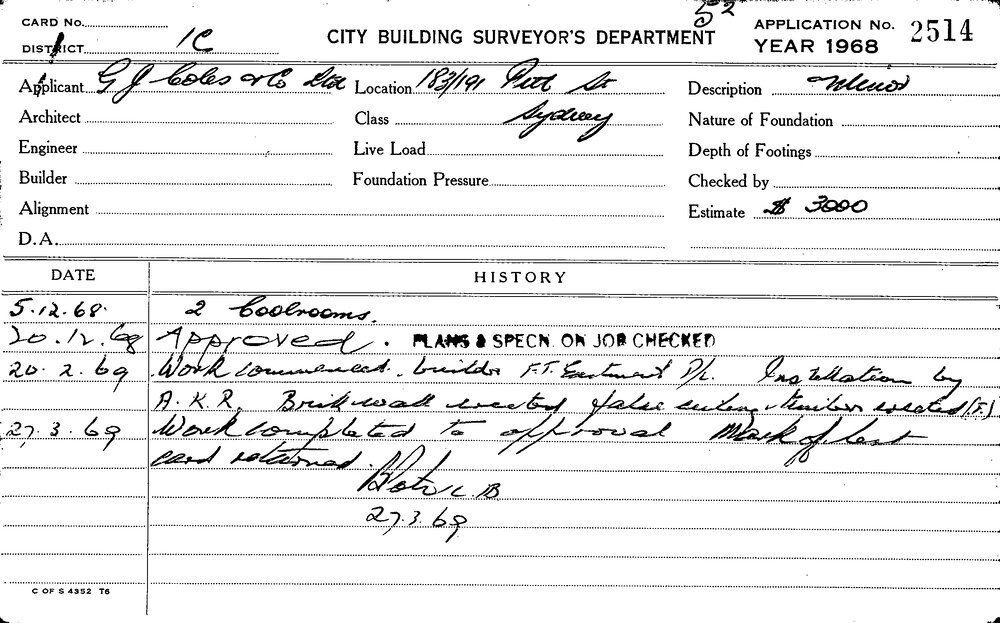 52
CARD No.
DISTRICT 1C
CITY BUILDING SURVEYOR'S DEPARTMENT
APPLICATION No. 2514
YEAR 1968
Applicant G J Coles & Co Ltd Location 183/191 Pitt St Description Minor
Architect Class Sydney Nature of Foundation
Engineer Live Load Depth of Footings
Builder Foundation Pressure Checked by
Alignment Estimate $ 3000
D.A.
DATE HISTORY
5.12.68. 2 Coolrooms.
20.12.68 Approved. PLANS & SPECN. ON JOB CHECKED
20.2.69 Work commenced. builder F.T. Eastment P/L. Installation by
A.K.R. Brick wall erected false ceiling timber erected (F.)
27.3.69 Work completed to approval
card returned.
27.3.69
C OF S 4352 T6